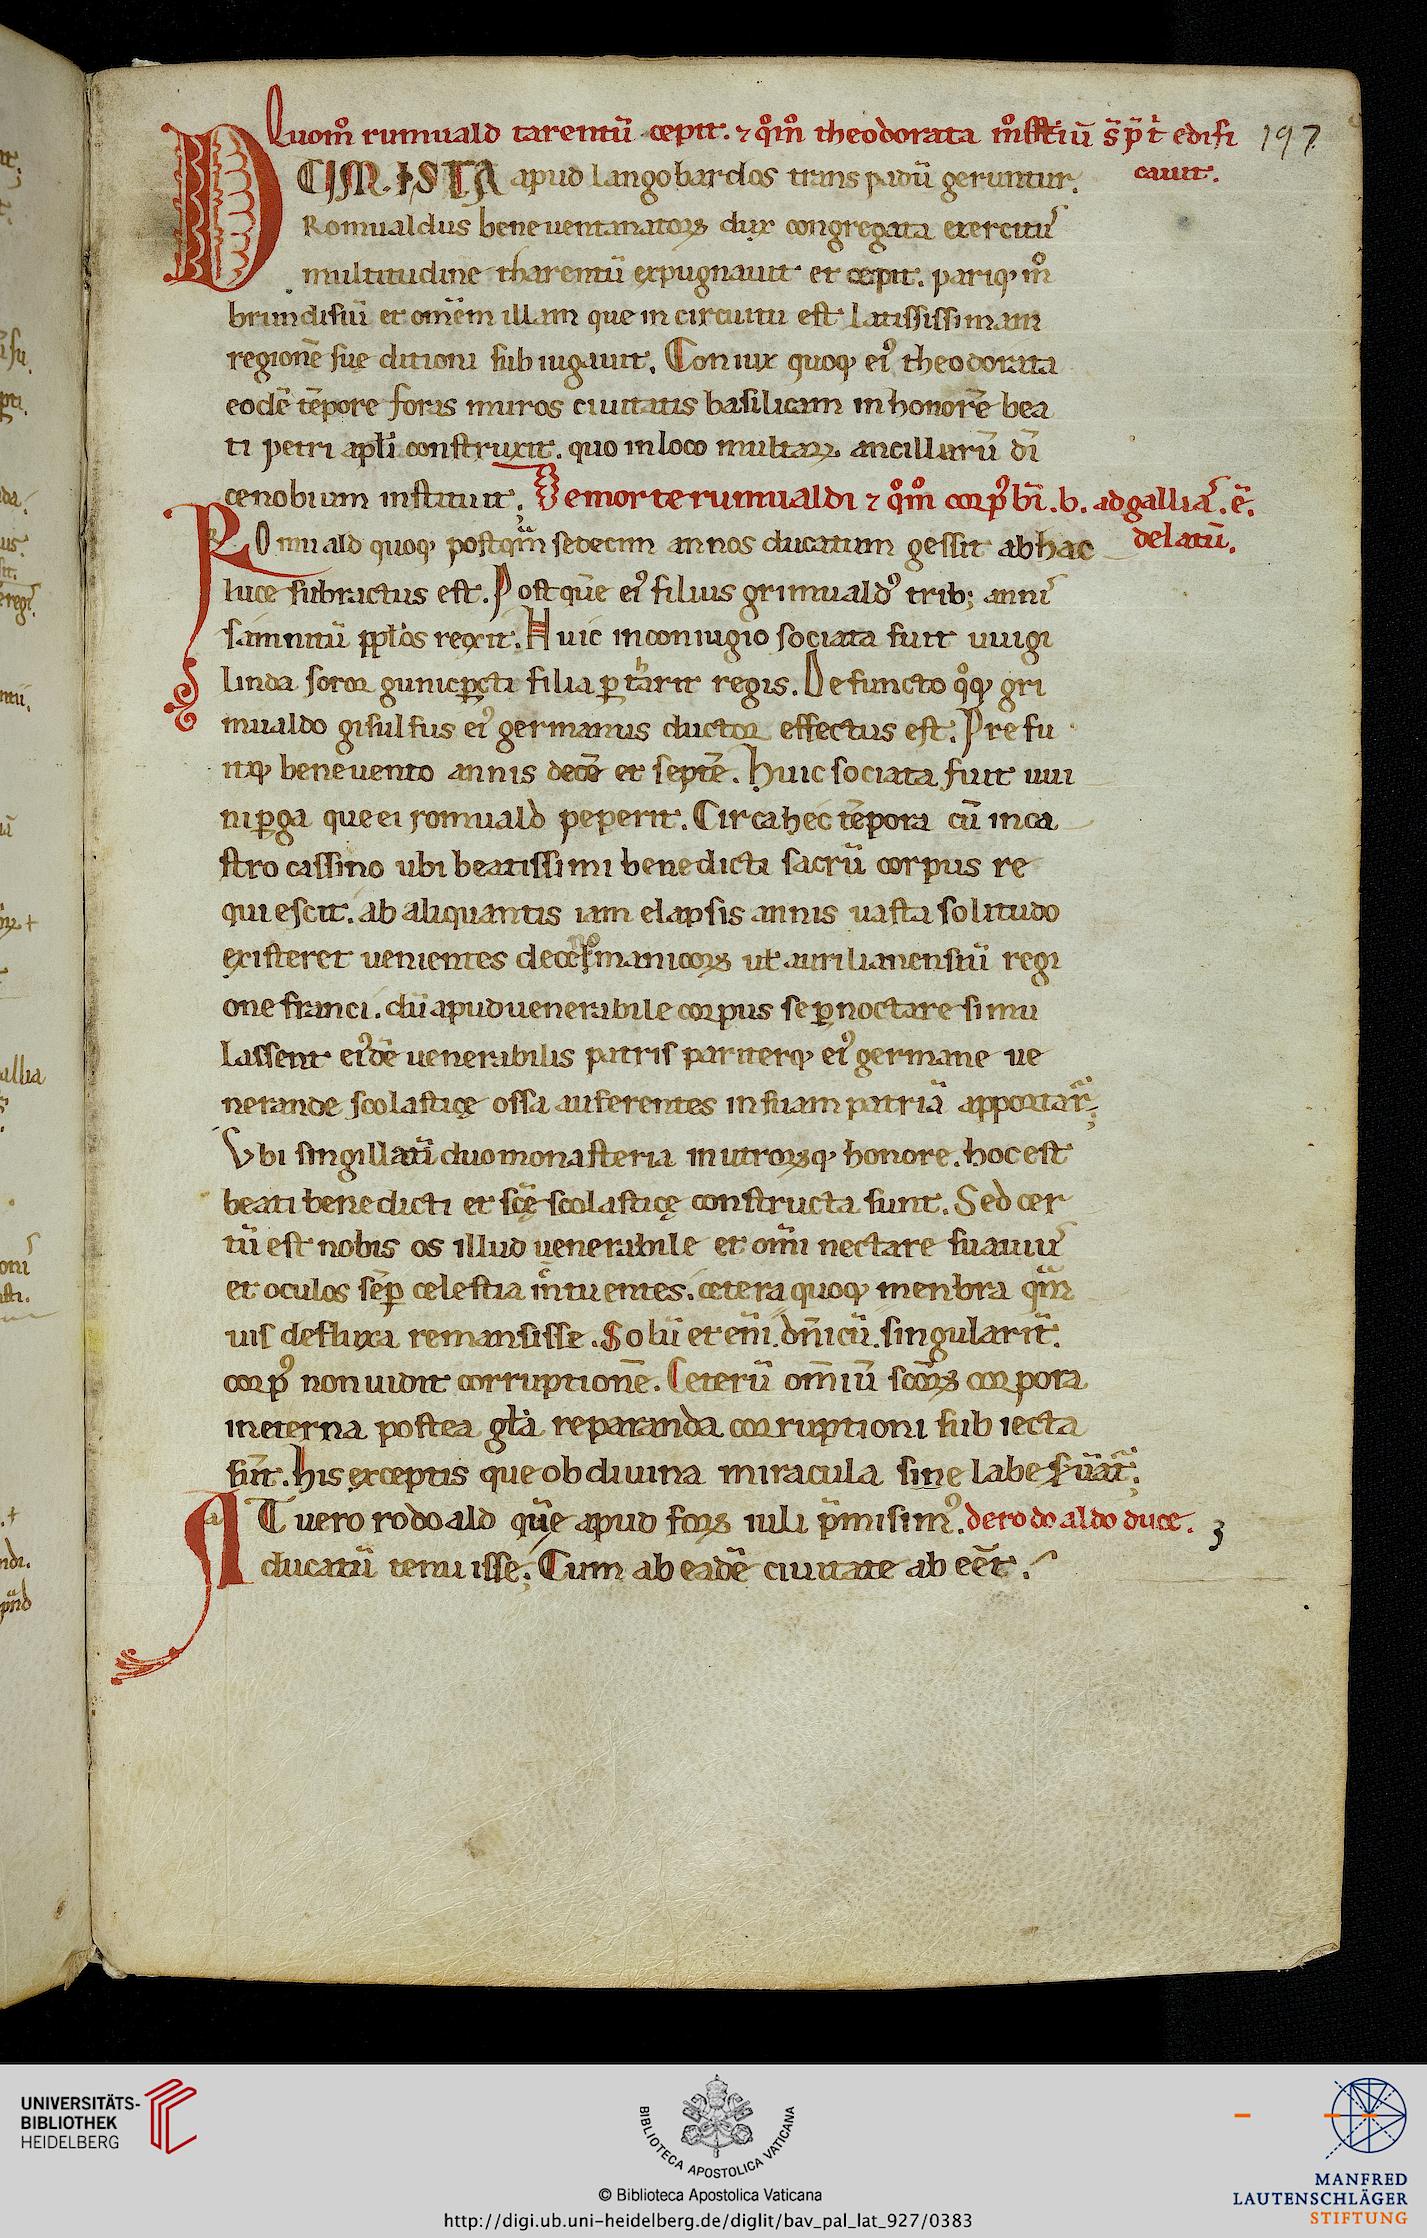 Quom̊ rumuald tarentū cepit. ⁊ qm̊ theodorata mo̊stiū s̄ p̄ t̄ edifi 197
cauit.
DUM. ISTA apud langobardos trans padū geruntur.
Romualdus beneuentanatoꝝ dux congregata exercitu᷒
multitudine tharentū expugnauit et cepit. pariqꝫ m̊
brundisiū et om̄em illam que in circuitu est latississimam
regionē sue ditioni subiugauit. Coniux quoqꝫ ei᷒ theodorata
eodē tēpore foras muros ciuitatis basilicam in honorē bea
ti petri apl̄i construxit. quo in loco multaꝝ ancillarū dī
cenobium instituit. De morte rumualdi ⁊ qm̊ corp᷒ bn̄i. b. ad galliā. ē.
delatū.
ROmuald quoqꝫ postqm̄ sedecim annos ducatum gessit ab hac
luce subractus est. Post quē ei᷒ filius grimuald᷒ trib; anni᷒
samnitū pplōs rexit. Huic in coniugio sociata fuit uuigi
linda soror gunicꝑcti filia ꝑtharit regis. Defuncto qo̊qꝫ gri
mualdo gisulfus ei᷒ germanus ductor effectus est. Prefu
itqꝫ beneuento annis decē et septē. Huic sociata fuit uui
niꝑga que ei romuald peperit. Circa hec tēpora cū in ca
stro cassino ubi beatissimi benedicti sacrū corpus re
quiescit. ab aliquantis iam elapsis annis uasta solitudo
existeret uenientes de celmanicoꝝ ul̄ aurilianensiū regi
one franci. dū apud uenerabile corpus se ꝑnoctare simu
lassent ei᷒dē uenerabilis patris pariterqꝫ ei᷒ germane ue
nerande scolasticę ossa auferentes in suam patriā apportar̄;
Ubi singillatī duo monasteria in utroꝝqꝫ honore. hoc est
beati benedicti et scę̄ scolasticę constructa sunt. Sed cer
tū est nobis os illud uenerabile et om̄i nectare suauiu᷒
et oculos sēꝑ celestia intuentes. cetera quoqꝫ menbra qm̄
uis defluxa remansisse. Solū et eni. dn̄icū. singularit̄.
corp᷒ non uidit corruptionē. Ceterū om̄iū scōꝝ corpora
in eterna postea gl̄a reparanda corruptioni subiecta
sūt. his exceptis que ob diuina miracula sine labe s̄uāt̄;
AT uero rodoald quē apud foꝝ iuli p̄misim᷒. de rodoaldo duce. 3
ducatū tenuisse; Cum ab eadē ciuitate ab eēt.
UNIVERSITÄTS-
BIBLIOTHEK
HEIDELBERG
BIBLIOTECA APOSTOLICA VATICANA
© Biblioteca Apostolica Vaticana
http://digi.ub.uni-heidelberg.de/diglit/bav_pal_lat_927/0383
MANFRED
LAUTENSCHLÄGER
STIFTUNG